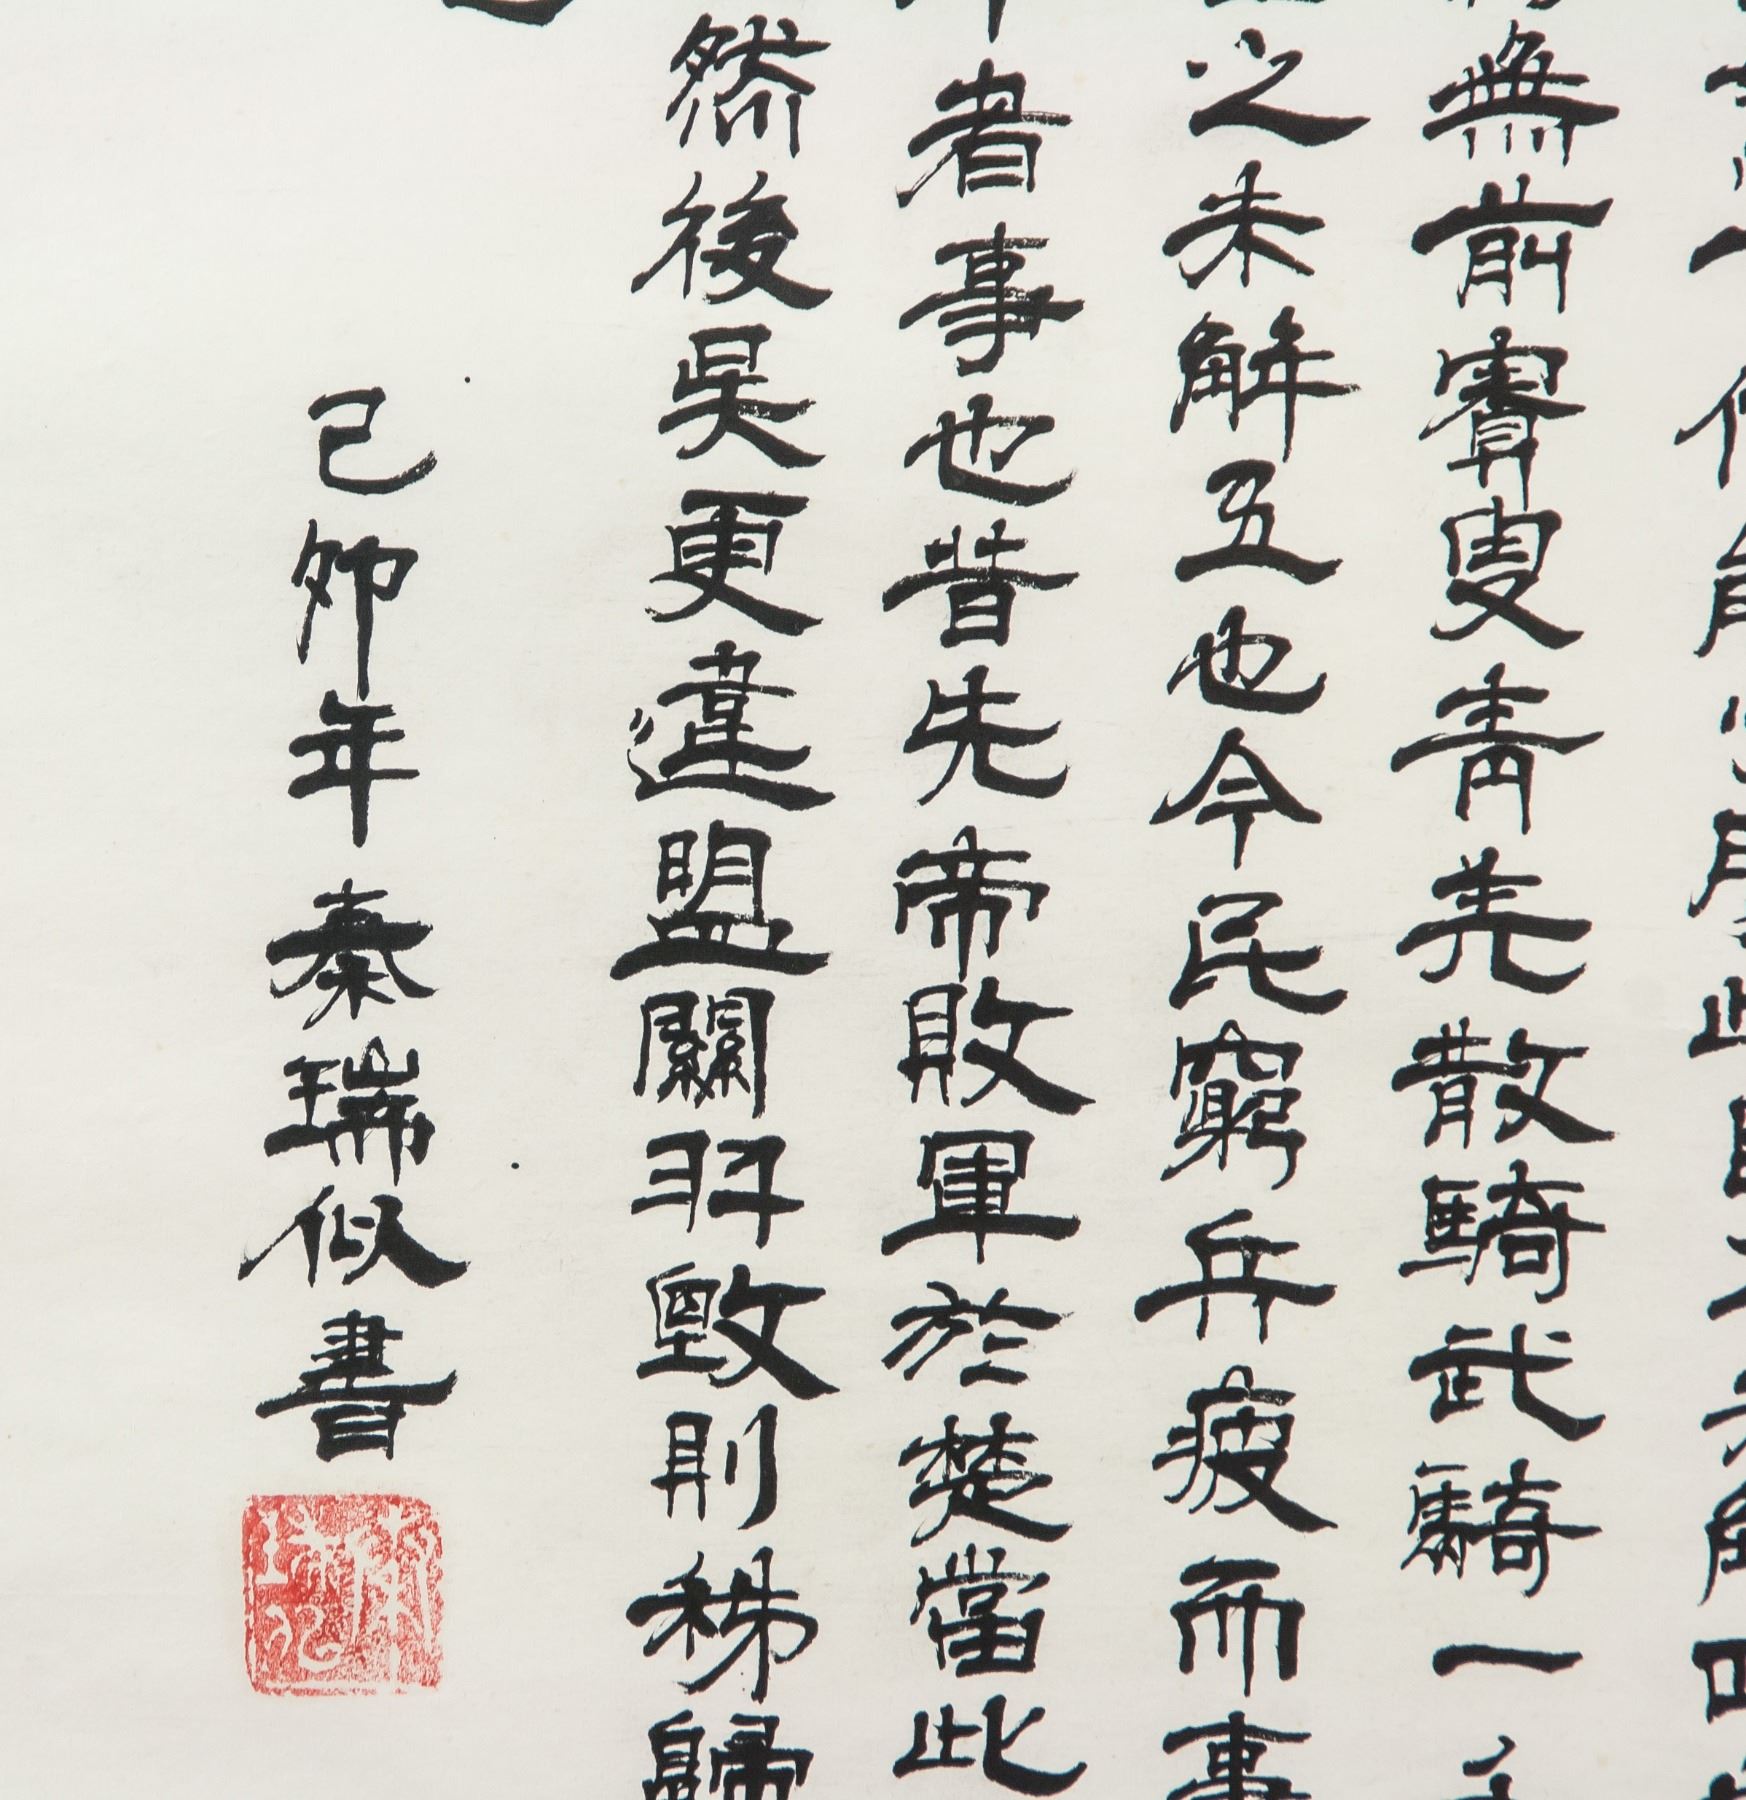 無前賨叟青羌散騎武騎一
之未解五也今民窮兵疲而事
者事也昔先帝敗軍於楚當此
然後吳更違盟關羽毀敗秭歸
己卯年秦瑞似書